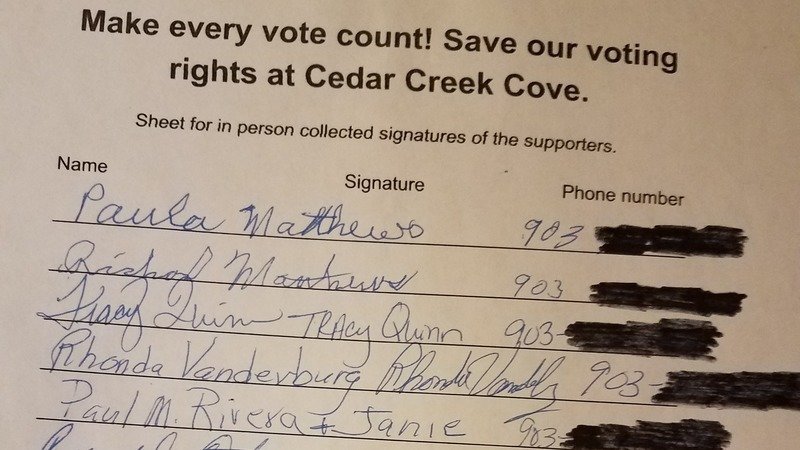 Make every vote count! Save our voting
rights at Cedar Creek Cove.
Sheet for in person collected signatures of the supporters.
Name Signature Phone number
Paula Matthews 903
Matthews 903
Tracy Quinn TRACY Quinn 903-
Rhonda Vanderburg Rhonda 903-
Paul M. Rivera & Janie 903-